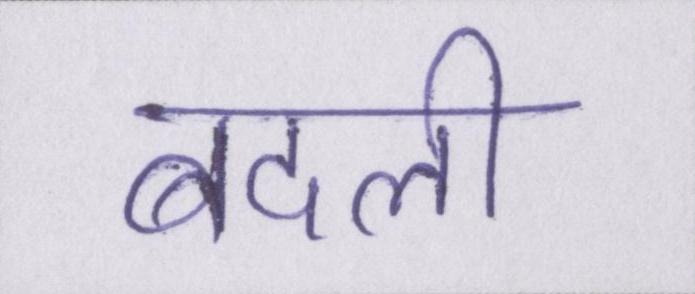 बदली